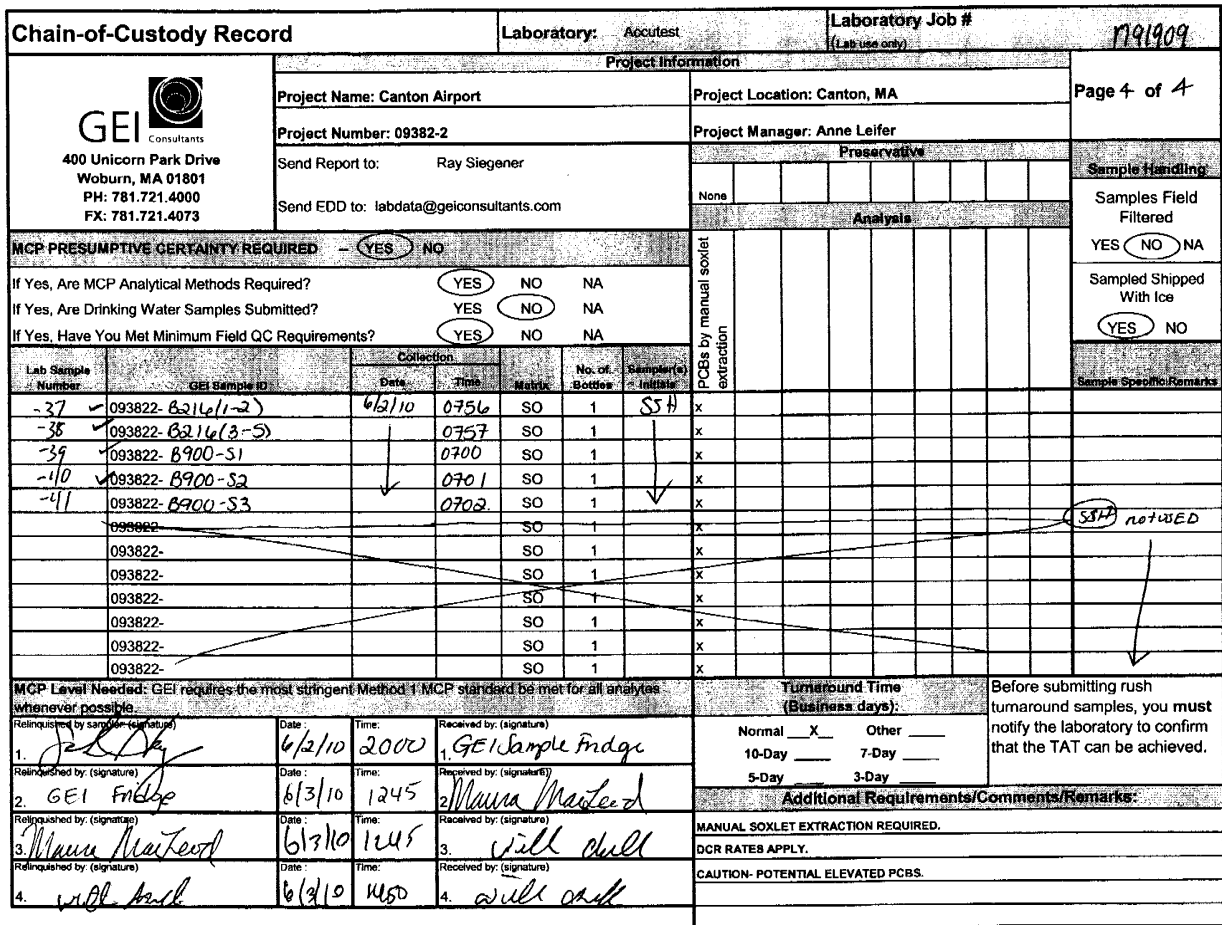 Chain-of-Custody Record
Laboratory: Accutest
Laboratory Job #
(Lab use only)
Project Information
GEI Consultants
400 Unicorn Park Drive
Woburn, MA 01801
PH: 781.721.4000
FX: 781.721.4073
Project Name: Canton Airport
Project Location: Canton, MA
Page 4 of 4
Project Number: 09382-2
Project Manager: Anne Leifer
Send Report to: Ray Siegener
Send EDD to: labdata@geiconsultants.com
Preservative
None
Analysis
PCBs by manual soxlet extraction
Sample Handling
Samples Field
Filtered
YES NO NA
Sampled Shipped
With Ice
YES NO
MCP PRESUMPTIVE CERTAINTY REQUIRED - YES NO
If Yes, Are MCP Analytical Methods Required? YES NO NA
If Yes, Are Drinking Water Samples Submitted? YES NO NA
If Yes, Have You Met Minimum Field QC Requirements? YES NO NA
Lab Sample Number GEI Sample ID Collection Date Time Matrix No. of Bottles Sampler(s) Initials Sample Specific Remarks
-37 093822- B216(1-2) 6/2/10 0756 SO 1 SSH x
-38 093822- B216(3-5) 0757 SO 1 x
-39 093822- B900-S1 0700 SO 1 x
-40 093822- B900-S2 0701 SO 1 x
-41 093822- B900-S3 0702 SO 1 x
093822- SO 1 x SSH not USED
093822- SO 1 x
093822- SO 1 x
093822- SO 1 x
093822- SO 1 x
093822- SO 1 x
093822- SO 1 x
MCP Level Needed: GEI requires the most stringent Method 1 MCP standard be met for all analytes
whenever possible.
Relinquished by sampler: (signature) Date: Time: Received by: (signature)
1. 6/2/10 2000 1. GEI Sample Fridge
Relinquished by: (signature) Date: Time: Received by: (signature)
2. GEI Fridge 6/3/10 1245 2. Maura MacLeod
Relinquished by: (signature) Date: Time: Received by: (signature)
3. Maura MacLeod 6/3/10 1245 3.
Relinquished by: (signature) Date: Time: Received by: (signature)
4. 6/3/10 4.
Turnaround Time
(Business days):
Normal X Other
10-Day 7-Day
5-Day 3-Day
Before submitting rush
turnaround samples, you must
notify the laboratory to confirm
that the TAT can be achieved.
Additional Requirements/Comments/Remarks:
MANUAL SOXLET EXTRACTION REQUIRED.
DCR RATES APPLY.
CAUTION- POTENTIAL ELEVATED PCBS.